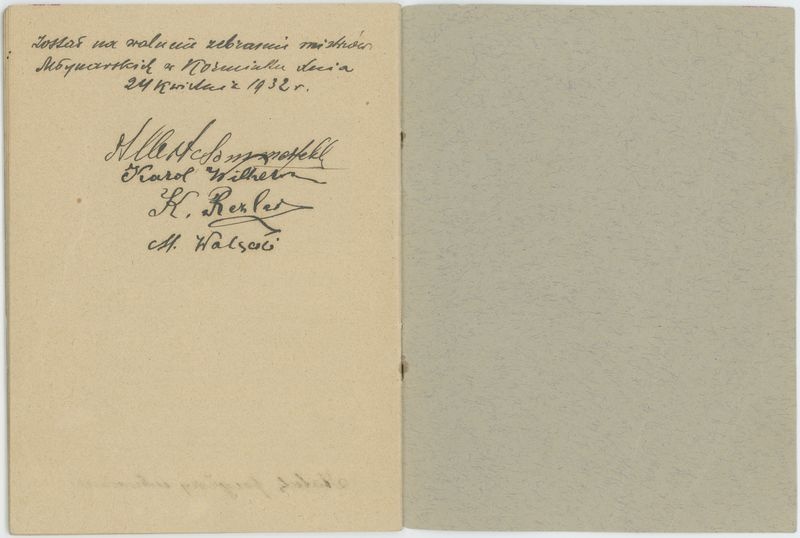 Został na walnem zebraniu mistrzów
Młynarskich w Koźminku dnia
24 Kwietnia 1932 r.
Albert Sommerfeld
Karol Wilhelm
K. Rezler
M. Walczak